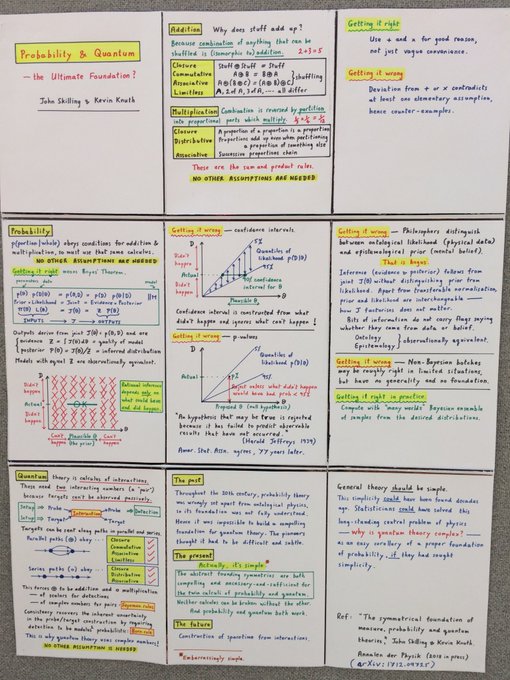 Probability & Quantum
— the Ultimate Foundation?
John Skilling & Kevin Knuth
Addition Why does stuff add up?
Because combination of anything that can be
shuffled is (isomorphic to) addition. 2+3=5
Closure Stuff ⊕ Stuff = Stuff
Commutative A⊕B = B⊕A
Associative A⊕(B⊕C) = (A⊕B)⊕C
shuffling
Limitless A, 2 of A, 3 of A, ... all differ
Multiplication Combination is reversed by partition
into proportional parts which multiply.
Closure A proportion of a proportion is a proportion
Distributive Proportions add up even when partitioning
a proportion of something else
Associative Successive proportions chain
These are the sum and product rules.
NO OTHER ASSUMPTIONS ARE NEEDED
Getting it right
Use + and × for good reason,
not just vague convenience.
Getting it wrong
Deviation from + or × contradicts
at least one elementary assumption,
hence counter-examples.
Probability
p(portion|whole) obeys conditions for addition &
multiplication, so must use that same calculus.
NO OTHER ASSUMPTIONS ARE NEEDED
Getting it right means Bayes Theorem.
parameters data model
Prior · Likelihood = Joint = Evidence · Posterior
INPUTS OUTPUTS
Outputs derive from joint J(θ) = p(θ,D) and are
evidence Z = ∫J(θ)dθ = quality of model
posterior P(θ) = J(θ)/Z = inferred distribution
Models with equal Z are observationally equivalent.
D
Didn't
happen
Actual
Didn't
happen
Can't Plausible θ Can't
happen (the prior) happen
Rational inference
depends only on
what could have
and did happen.
Getting it wrong — confidence intervals.
D
Didn't
happen
Actual
Didn't
happen
5%
Quantiles of
likelihood p(D|θ)
95%
90% confidence
interval for θ
Plausible θ
θ
Confidence interval is constructed from what
didn't happen and ignores what can't happen!
Getting it wrong — p-values
D
Didn't
happen
Actual
Didn't
happen
5%
Quantiles of
likelihood p(D|θ)
95%
Reject unless what didn't happen
would have had prob < 95%
Proposed θ (null hypothesis)
"An hypothesis that may be true is rejected
because it has failed to predict observable
results that have not occurred."
(Harold Jeffreys 1939)
Amer. Stat. Assn. agrees, 77 years later.
Getting it wrong — Philosophers distinguish
between ontological likelihood (physical data)
and epistemological prior (mental belief).
That is bogus.
Inference (evidence & posterior) follows from
joint J(θ) without distinguishing prior from
likelihood. Apart from transferable normalisation,
prior and likelihood are interchangeable —
how J factorises does not matter.
Bits of information do not carry flags saying
whether they came from data or belief.
Ontology
Epistemology
observationally equivalent.
Getting it wrong — Non-Bayesian botches
may be roughly right in limited situations,
but have no generality and no foundation.
Getting it right in practice:
Compute with "many worlds" Bayesian ensemble
of samples from the desired distributions.
Quantum theory is calculus of interactions.
These need two interacting numbers (a "pair")
because targets can't be observed passively.
Setup → Probe Probe → Detection
Interaction
Setup → Target Target
Targets can be sent along paths in parallel and series.
Parallel paths (⊕) obey ...
Closure
Commutative
Associative
Limitless
Series paths (⊙) obey ...
Closure
Distributive
Associative
This forces ⊕ to be addition and ⊙ multiplication
— of scalars for detections
— of complex numbers for pairs Feynman rules
Consistency recovers the inherent uncertainty
in the probe/target construction by requiring
detection to be modulus² probabilistic: Born rule
This is why quantum theory uses complex numbers!
NO OTHER ASSUMPTION IS NEEDED
The past
Throughout the 20th century, probability theory
was wrongly set apart from ontological physics,
so its foundation was not fully understood.
Hence it was impossible to build a compelling
foundation for quantum theory. The pioneers
thought it had to be difficult and subtle.
The present
Actually, it's simple.*
The abstract founding symmetries are both
compelling and necessary-and-sufficient for
the twin calculi of probability and quantum.
Neither calculus can be broken without the other.
And probability and quantum both work.
The future
Construction of spacetime from interactions.
*Embarrassingly simple.
General theory should be simple.
This simplicity could have been found decades
ago. Statisticians could have solved this
long-standing central problem of physics
— why is quantum theory complex?
as an easy corollary of a proper foundation
of probability, if they had sought
simplicity.
Ref: "The symmetrical foundation of
measure, probability and quantum
theories," John Skilling & Kevin Knuth
Annalen der Physik (2018 in press)
(arXiv: 1712.09725)